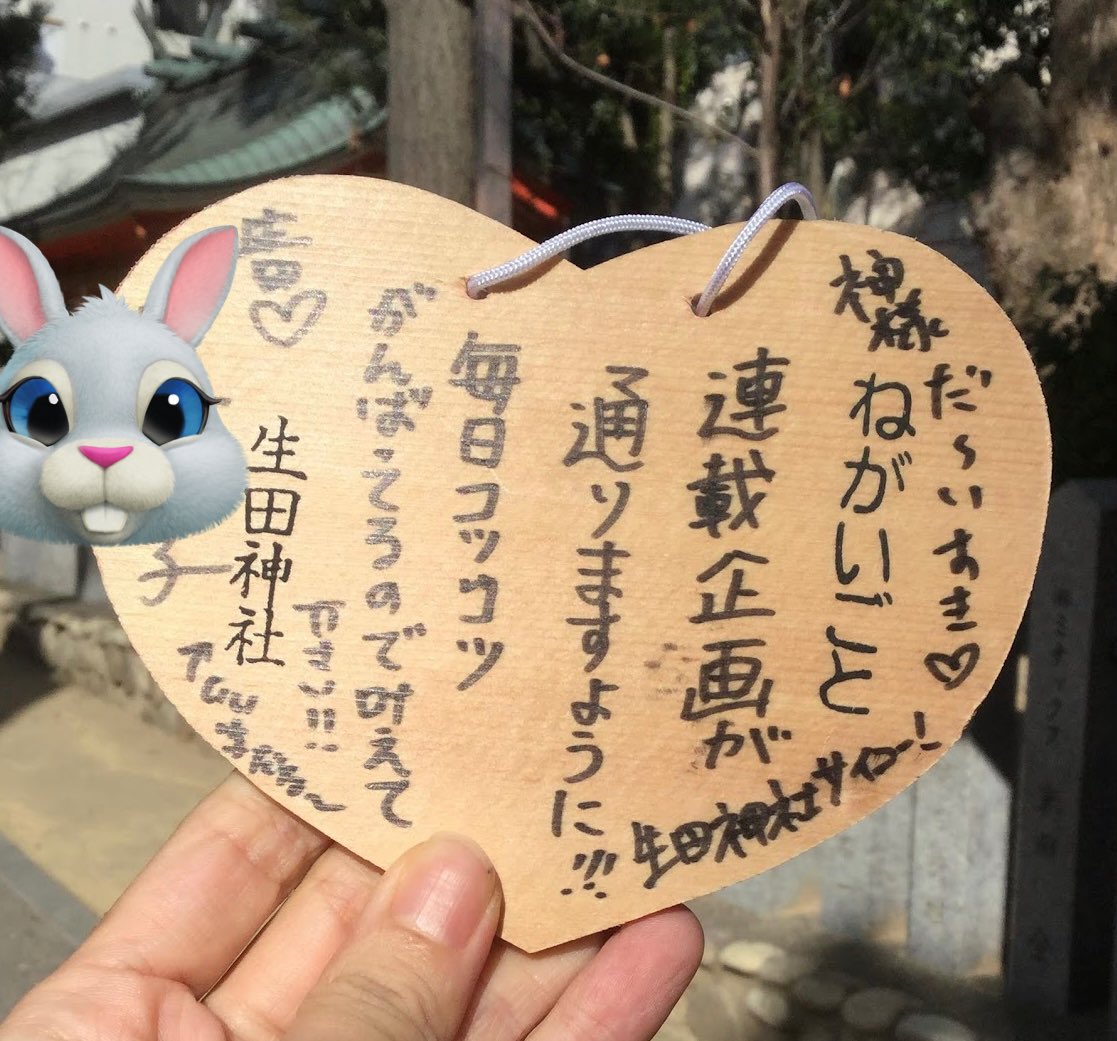 神様
だ～いすき♡
ねがいごと
連載企画が
通りますように!!!
毎日コツコツ
がんばってるので叶えて
下さい!!
生田神社サイコー!
生田神社
子
↑
また来る～